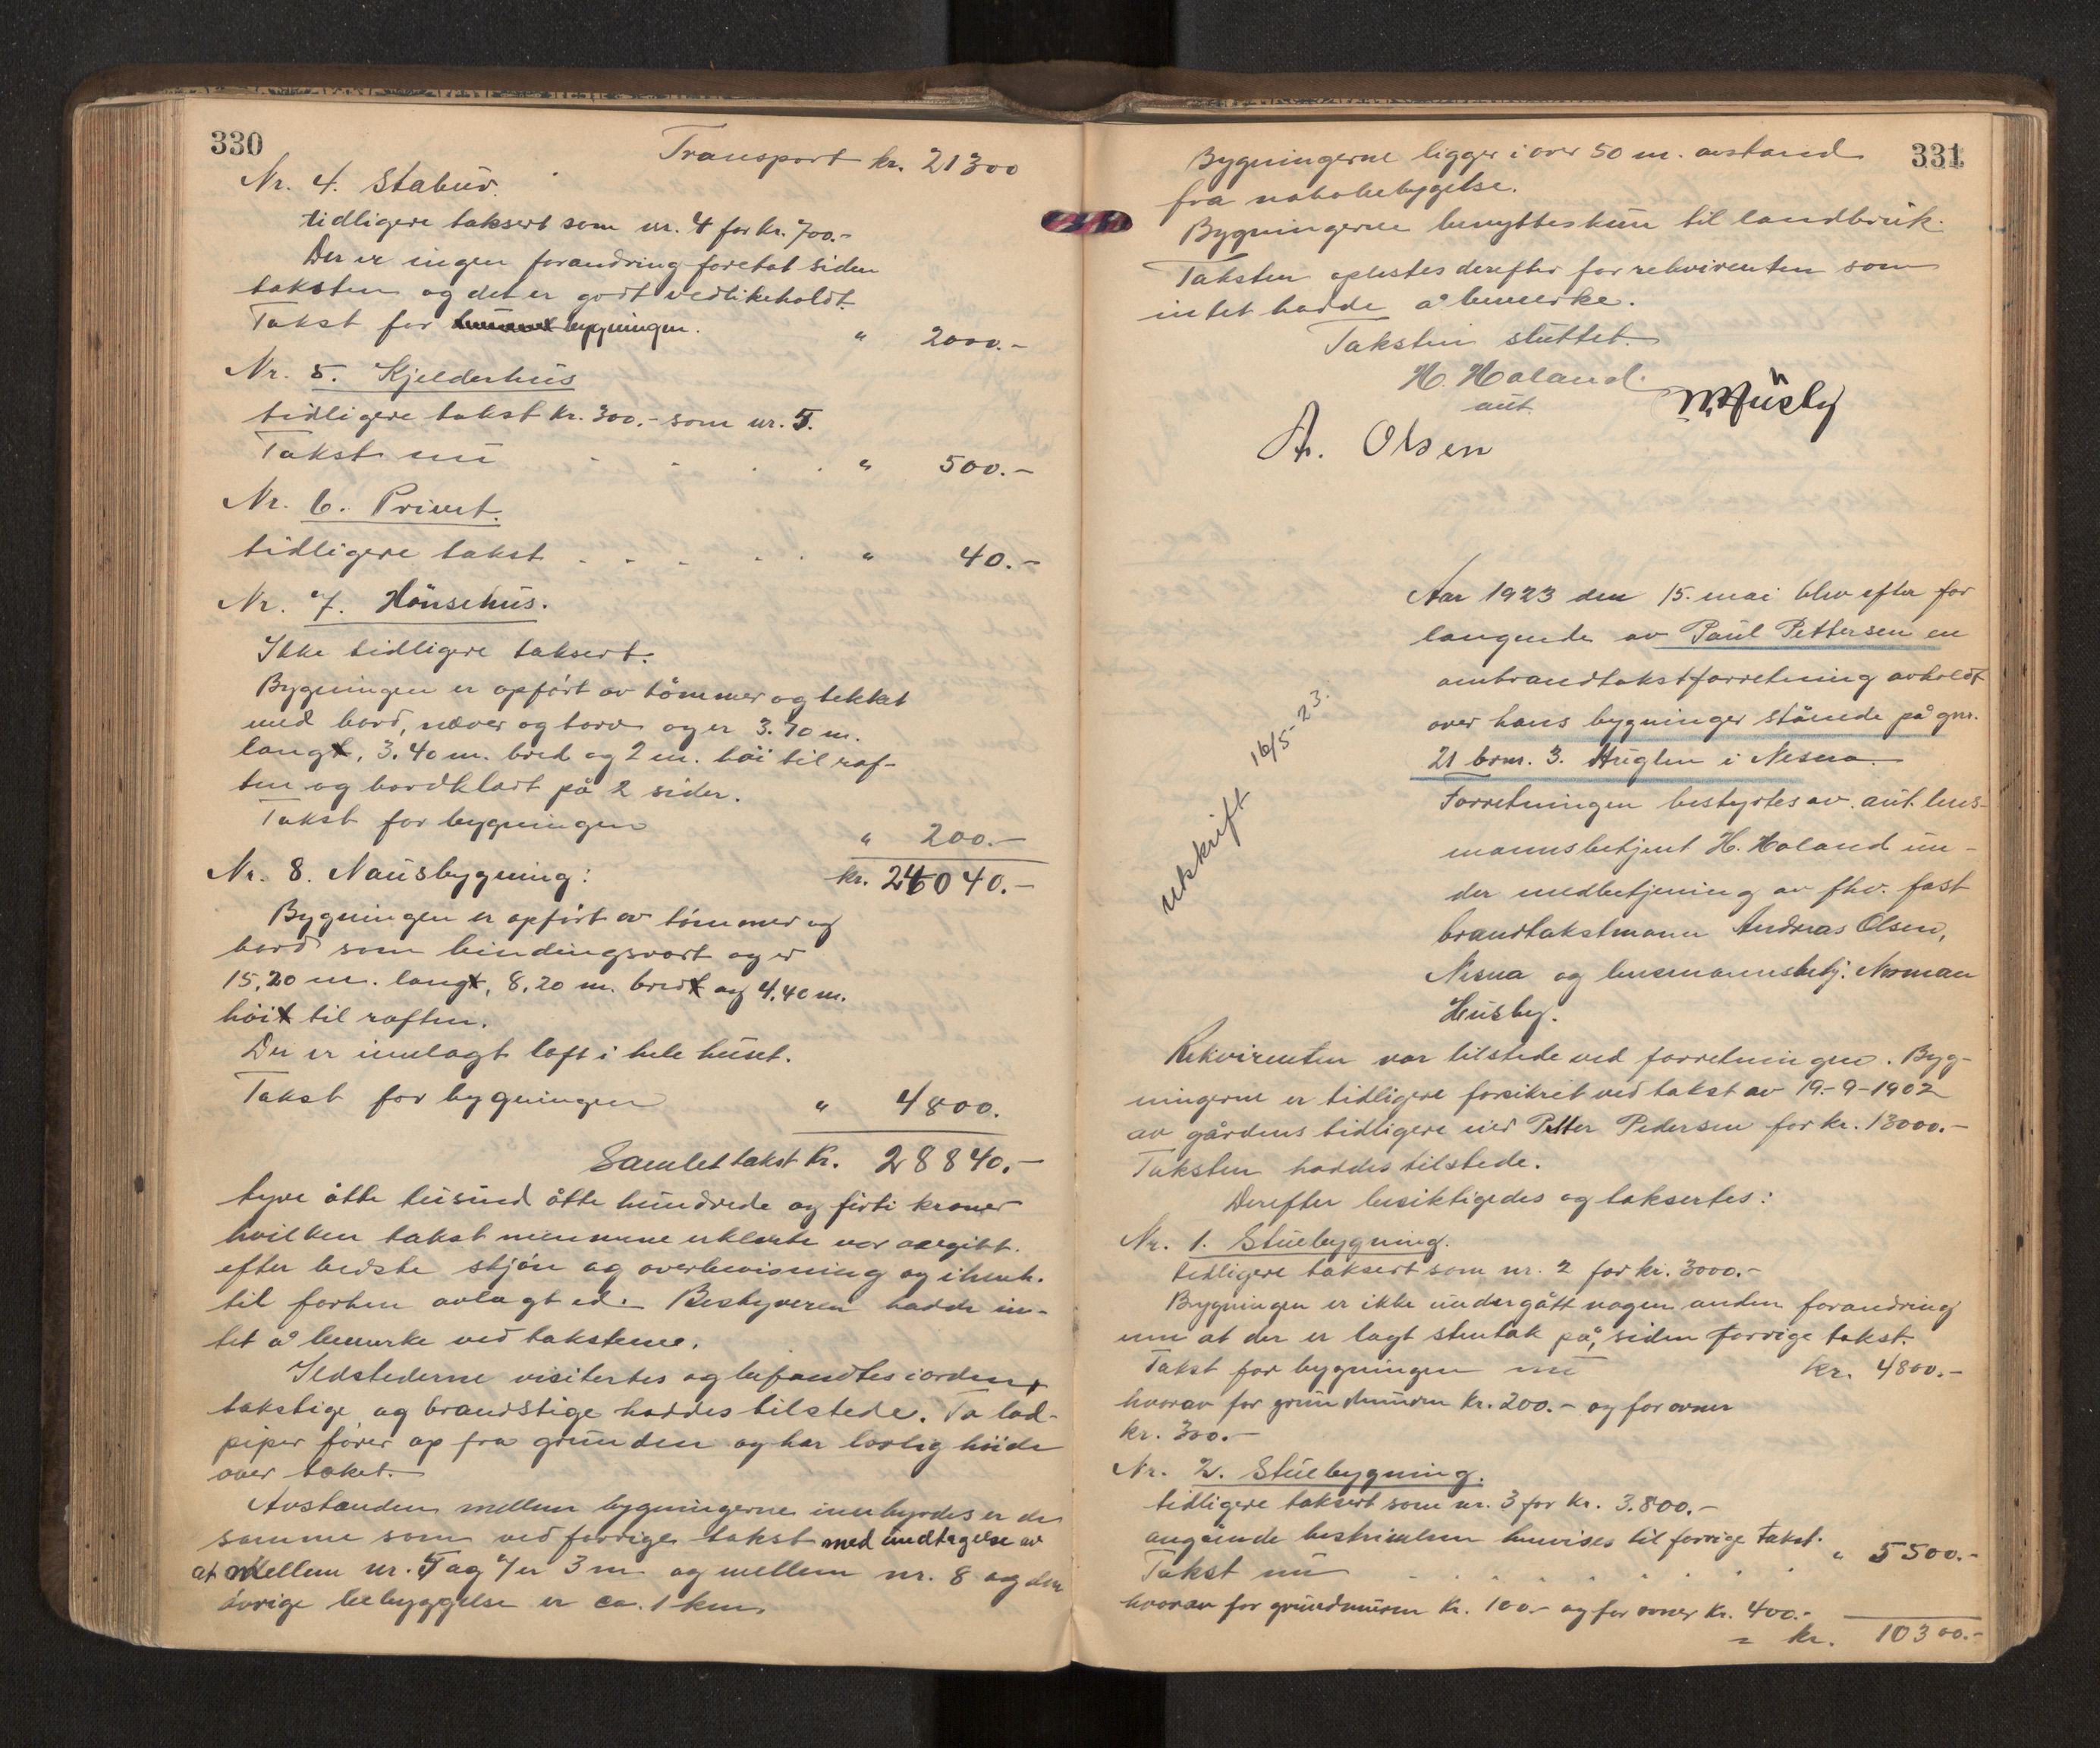 330
Transport kr. 21300
Nr. 4. Stabur.
tidligere taksert som nr. 4 for kr. 700.-
Der er ingen forandring foretat siden
taksten og det er godt vedlikeholdt.
Takst for bygningen. " 2000.-
Nr. 5. Kjelderhus
tidligere takst kr. 300.- som nr. 5.
Takst nu - - . . " 500.-
Nr. 6. Privet.
tidligere takst . - - . . " 40.-
Nr. 7. Hönsehus.
Ikke tidligere taksert.
Bygningen er opført av tömmer og tekket
med bord, næver og torv og er 3.70 m.
langt, 3.40 m. bred og 2 m. höi til raf-
ten og bordklædt på 2 sider.
Takst for bygningen " 200.-
kr. 24040.-
Nr. 8. Nausbygning:
Bygningen er opført av tömmer og
bord som bindingsverk og er
15,20 m. langt, 8,20 m. bredt og 4,40 m.
höit til raften.
Der er innlagt loft i hele huset.
Takst for bygningen " 4800.
Samlet takst kr. 28840.-
tyve åtte tusind åtte hundrede og firti kroner
hvilken takst mennene erklærte var avgitt
efter bedste skjön og overbevisning og i henh.
til forhen avlagt ed. Bestyreren hadde in-
tet å bemerke ved takstene.
Ildstederne visitertes og befandtes i orden,
takstige og brandstige haddes tilstede. To lod-
piper fører op fra grunden og har lovlig höide
over taket.
Avstanden mellem bygningerne innbyrdes er de
samme som ved forrige takst med undtagelse av
at mellem nr. 5 og 7 er 3 m og mellem nr. 8 og den
övrige bebyggelse er ca. 1 km.
331
Bygningerne ligger i over 50 m. avstand
fra nabobebygelse.
Bygningerne benyttes kun til landbruk.
Taksten oplestes derefter for rekvirenten som
intet hadde å bemerke.
Taksten sluttet.
H. Haland.
aut.
N. Husby
A. Olsen
utskrift 16/5-23.
Aar 1923 den 15. mai blev efter for
langende av Paul Pettersen en
ombrandtakstforretning avholdt
over hans bygninger stående på gnr.
21 brnr. 3. Huglen i Nesna.
Forretningen bestyrtes av aut. lens-
mannsbetjent H. Haland un-
der medbetjening av fhv. fast
brandtakstmann Andreas Olsen,
Nesna og lensmannsbetj. Norman
Husby.
Rekvirenten var tilstede ved forretningen. Byg-
ningerne er tidligere forsikret ved takst av 19-9-1902
av gårdens tidligere eier Petter Pedersen for kr. 13000.-
Taksten haddes tilstede.
Derefter besiktigedes og taksertes:
Nr. 1. Stuebygning.
tidligere taksert som nr. 2 for kr. 3000.-
Bygningen er ikke undergått nogen anden forandring
enn at der er lagt stentak på, siden forrige takst.
Takst for bygningen nu kr. 4800.-
hvorav for grundmuren kr. 200.- og for ovner
kr. 300.-
Nr. 2. Stuebygning.
tidligere taksert som nr. 3 for kr. 3.800.-
angående beskrivelsen henvises til forrige takst.
Takst nu . . . . . . . " 5500.-
hvorav for grundmuren kr. 100.- og for ovner kr. 400.-
= kr. 10300.-